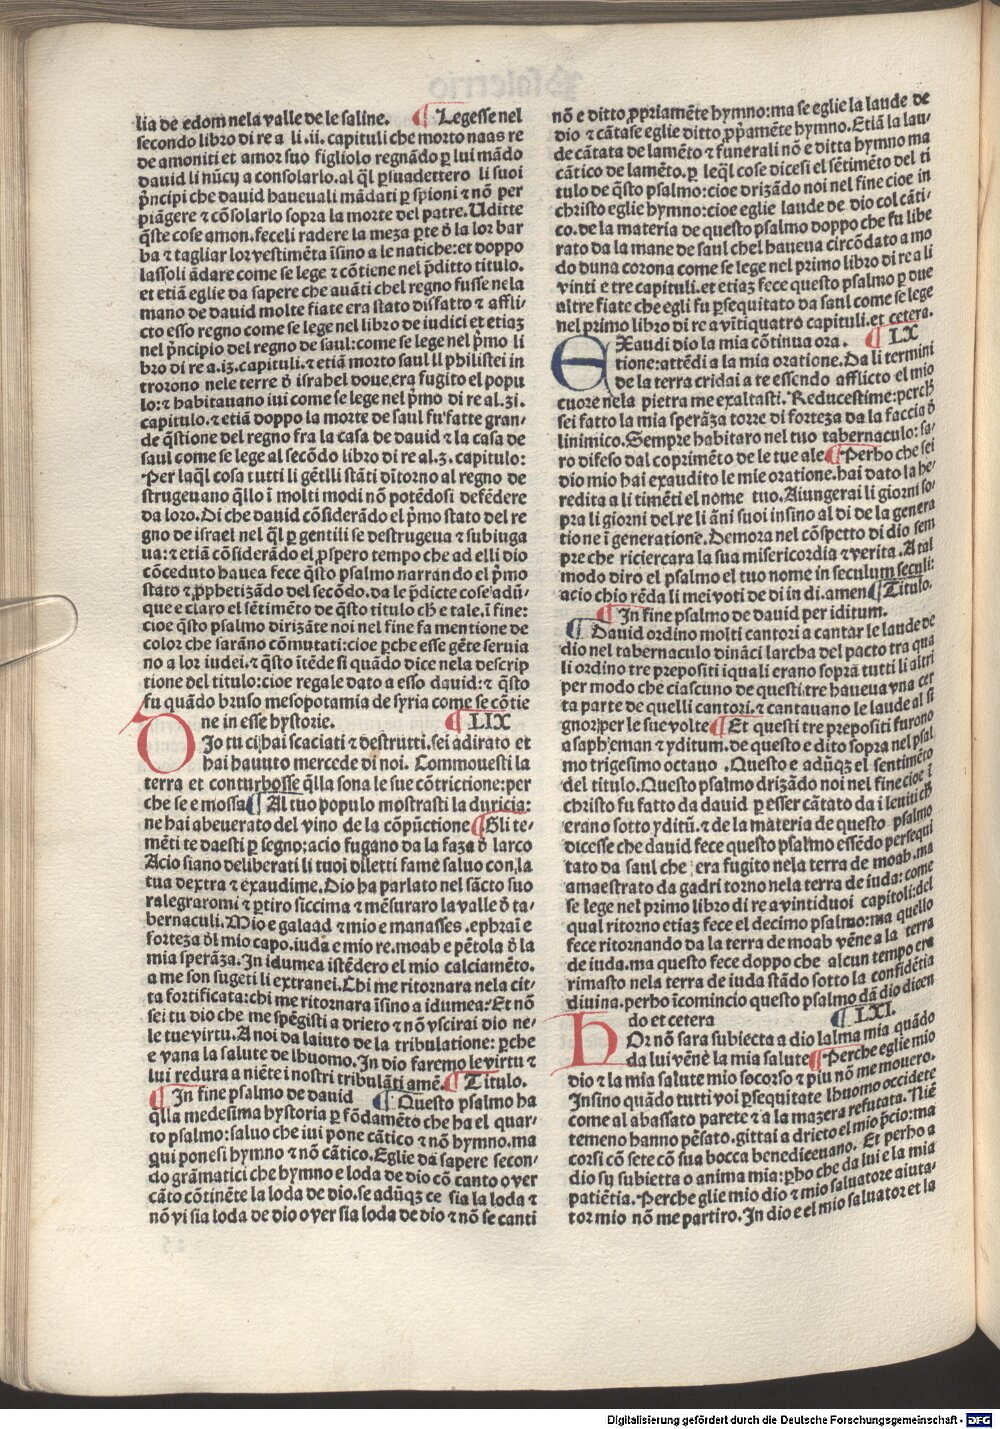 lia de edom nela valle de le saline. ¶ Legesse nel
secondo libro di re a li .ii. capituli che morto naas re
de amoniti et amor suo figliolo regnãdo ꝑ lui mãdo
dauid li nũcij a consolarlo.al q̃l ꝑsuadettero li suoi
p̃ncipi che dauid haueuali mãdati ꝑ spioni ⁊ nõ per
piãgere ⁊ cõsolarlo sopra la morte del patre.Uditte
q̃ste cose amon.feceli radere la meza ꝑte d̃ la lor bar
ba ⁊ tagliar lor vestimẽta ĩsino a le natiche:et doppo
lassoli ãdare come se lege ⁊ cõtiene nel p̃ditto titulo.
et etiã eglie da sapere che auãti chel regno fusse nela
mano de dauid molte fiate era stato disfatto ⁊ affli-
cto esso regno come se lege nel libro de iudici et etiaʒ
nel p̃ncipio del regno de saul:come se lege nel p̃mo li
bro di re a.iʒ.capituli.⁊ etiã morto saul li philistei in
trorono nele terre d̃ israhel doue,era fugito el popu
lo:⁊ habitauano iui come se lege nel p̃mo di re al.ʒi.
capitulo.⁊ etiã doppo la morte de saul fu fatte gran-
de q̃stione del regno fra la casa de dauid ⁊ la casa de
saul come se lege al secõdo libro di re al.ʒ.capitulo:
Per laq̃l cosa tutti li gẽtili stãti dĩtorno al regno de
strugeuano q̃llo ĩ molti modi nõ potẽdosi defẽdere
da loro.Di che dauid cõsiderãdo el p̃mo stato del re
gno de israel nel q̃l ꝑ gentili se destrugeua ⁊ subiuga
ua:⁊ etiã cõsiderãdo el ꝓspero tempo che ad elli dio
cõceduto hauea fece q̃sto psalmo narrando el p̃mo
stato ⁊ ꝓphetizãdo del secõdo.da le p̃dicte cose adũ-
que e claro el sẽtimẽto de q̃sto titulo ch̃ e tale.ĩ fine:
cioe q̃sto psalmo dirizãte noi nel fine fa mentione de
color che sarãno cõmutati:cioe ꝑche esse gẽte seruia
no a lor iudei.⁊ q̃sto ĩtẽde si quãdo dice nela descrip
tione del titulo:cioe regale dato a esso dauid:⁊ q̃sto
fu quãdo bruso mesopotamia de syria come se cõtie
ne in esse hystorie. ¶ LIX
DJo tu ci hai scaciati ⁊ destrutti.sei adirato et
hai hauuto mercede di noi. Commouesti la
terra et conturbosse q̃lla sona le sue cõtrictione:per
che se e mossa ¶ Al tuo populo mostrasti la duricia:
ne hai abeuerato del vino de la cõpũctione ¶ Gli te-
mẽti te daesti ꝑ segno:acio fugano da la faza d̃ larco
Acio siano deliberati li tuoi diletti fame saluo con la
tua dextra ⁊ exaudime.Dio ha parlato nel sãcto suo
ralegraromi ⁊ ꝑtiro siccima ⁊ mẽsuraro la valle d̃ ta-
bernaculi.Mio e galaad ⁊ mio e manasses.ephrai e
forteza d̃l mio capo.iuda e mio re.moab e pẽtola d̃ la
mia sperãza.In idumea istẽdero el mio calciamẽto.
a me son sugeti li extranei.Chi me ritornara nela cit-
ta fortificata:chi me ritornara ĩsino a idumea:Et nõ
sei tu dio che me spẽgisti a drieto ⁊ nõ vscirai dio ne-
le tue virtu.A noi da laiuto de la tribulatione: ꝑche
e vana la salute de lhuomo.In dio faremo le virtu ⁊
lui redura a niẽte i nostri tribulãti amẽ. ¶ Titulo.
¶ In fine psalmo de dauid ¶ Questo psalmo ha
q̃lla medesima hystoria ꝑ fõdamẽto che ha el quar-
to psalmo:saluo che iui pone cãtico ⁊ nõ hymno.ma
qui ponesi hymno ⁊ nõ cãtico.Eglie da sapere secon-
do grãmatici che hymno e loda de dio cõ canto over
cãto cõtinẽte la loda de dio.se adũqʒ ce sia la loda ⁊
nõ vi sia loda de dio over sia loda de dio ⁊ nõ se canti
nõ e ditto ꝓpriamẽte hymno:ma se eglie la laude de
dio ⁊ cãtase eglie ditto ꝓp̃amẽte hymno.Etiã la lau-
de cãtata de lamẽto ⁊ funerali nõ e ditta hymno ma
cãtico de lamẽto.ꝑ leq̃l cose dicesi el sẽtimẽto del ti
tulo de q̃sto psalmo:cioe drizãdo noi nel fine cioe in
christo eglie hymno:cioe eglie laude de dio col cãti-
co.de la materia de questo psalmo doppo che fu libe
rato da la mane de saul chel haueua circõdato a mo
do duna corona come se lege nel primo libro di re a li
vinti e tre capituli.et etiaʒ fece questo psalmo ꝑ due
altre fiate che egli fu ꝑsequitato da saul come se lege
nel primo libro di re a vĩtiquatro capituli.et cetera.
EXaudi dio la mia cõtinua ora. ¶ LX
tione:attẽdi a la mia oratione.Da li termini
de la terra cridai a te essendo afflicto el mio
cuore nela pietra me exaltasti.Reducestime:perch̃
sei fatto la mia sperãza torre di forteza da la faccia d̃
linimico.Sempre habitaro nel tuo tabernaculo:sa-
ro difeso dal coprimẽto de le tue ale ¶ Perho che sei
dio mio hai exaudito le mie oratione.hai dato la he-
redita a li timẽti el nome tuo.Aiungerai li giorni so-
pra li giorni del re li ãni suoi insino al di de la genera
tione ĩ generatione.Demora nel cõspetto di dio sem
pre che riciercara la sua misericordia ⁊ verita.A tal
modo diro el psalmo el tuo nome in seculum seculi:
acio chio rẽda li mei voti de di in di.amen ¶ Titulo.
¶ In fine psalmo de dauid per iditum.
¶ Dauid ordino molti cantori a cantar le laude de
dio nel tabernaculo dinãci larcha del pacto tra qua
li ordino tre prepositi iquali erano soprã tutti li altri
per modo che ciascuno de questi tre haueua vna cer
ta parte de quelli cantori.⁊ cantauano le laude al si
gnor per le sue volte ¶ Et questi tre prepositi furono
asaph:eman ⁊ yditum.de questo e dito sopra nel psal
mo trigesimo octauo .Questo e adũqʒ el sentimẽto
del titulo.Questo psalmo drizãdo noi nel fine cioe ĩ
christo fu fatto da dauid ꝑ esser cãtato da i leuiti ch̃
erano sotto yditũ.⁊ de la materia de questo psalmo
dicesse che dauid fece questo psalmo essẽdo persequi
tato da saul che era fugito nela terra de moab.ma
amaestrato da gadri torno nela terra de iuda:come
se lege nel primo libro di re a vintiduoi capitoli:del
qual ritorno etiaʒ fece el decimo psalmo:ma quello
fece ritornando da la terra de moab vẽne a la terra
de iuda.ma questo fece doppo che alcun tempo era
rimasto nela terra de iuda stãdo sotto la confidẽtia
diuina.perho ĩcomincio questo psalmo dã dio dicen
do et cetera ¶ LXI.
HOr nõ sara subiecta a dio lalma mia quãdo
da lui vẽnẽ la mia salute ¶ Perche eglie mio
dio ⁊ la mia salute mio socorso ⁊ piu nõ me mouero.
Insino quãdo tutti voi ꝑsequitate lhuomo occidete
come al abassato parete ⁊ a la mazera refutata. Niẽ
temeno hanno pẽsato.gittai a drieto el mio p̃cio:ma
corsi cõ sete cõ sua bocca benediceuano. Et perho a
dio sij subietta o anima mia:ꝑho che da lui e la mia
patiẽtia.Perche glie mio dio ⁊ mio saluatore aiuta-
tor mio nõ me partiro.In dio e el mio saluator et la
Digitalisierung gefördert durch die Deutsche Forschungsgemeinschaft - DFG